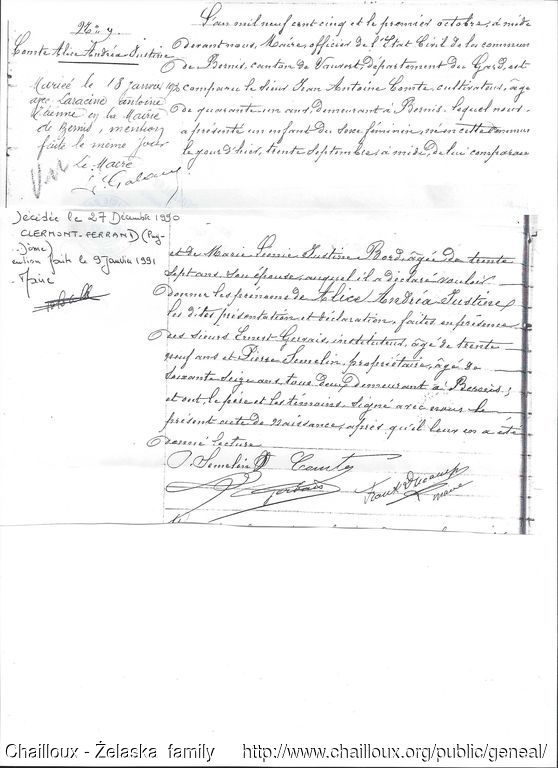 Comte Alice Andréa Justine
Mariée le 18 janvier
avec Laracine Antoine
Etienne en la Mairie
de Bernis, mention
faite le même jour
Le Maire
L'an mil neuf cent cinq et le premier octobre, à midi
devant nous, Maire, officier de l'Etat Civil de la commune
de Bernis, canton de Vauvert, département du Gard, est
comparu le Sieur Jean Antoine Comte, cultivateur, âgé
de quarante un ans, demeurant à Bernis, lequel nous
a présenté un enfant du sexe féminin, né en cette commune
le jour d'hier, trente Septembre, à midi, de lui comparant
Décédée le 27 Décembre 1990
CLERMONT-FERRAND (Puy-
Dôme)
ention faite le 9 Janvier 1991
Maire
et de Marie Léonie Justine Bord, âgée de trente
sept ans, son épouse, auquel il a déclaré vouloir
donner les prénoms de Alice Andréa Justine
les dites présentation et déclaration, faites en présence
des Sieurs Ernest Gervais, instituteur, âgé de trente
neuf ans et Pierre Semelin, propriétaire, âgé de
soixante seize ans, tous deux demeurant à Bernis;
et ont, le père et les témoins, signé avec nous le
présent acte de naissance, après qu'il leur en a été
donné lecture
P. Semelin Comte
E. Gervais
maire
Chailloux - Żelaska family http://www.chailloux.org/public/geneal/